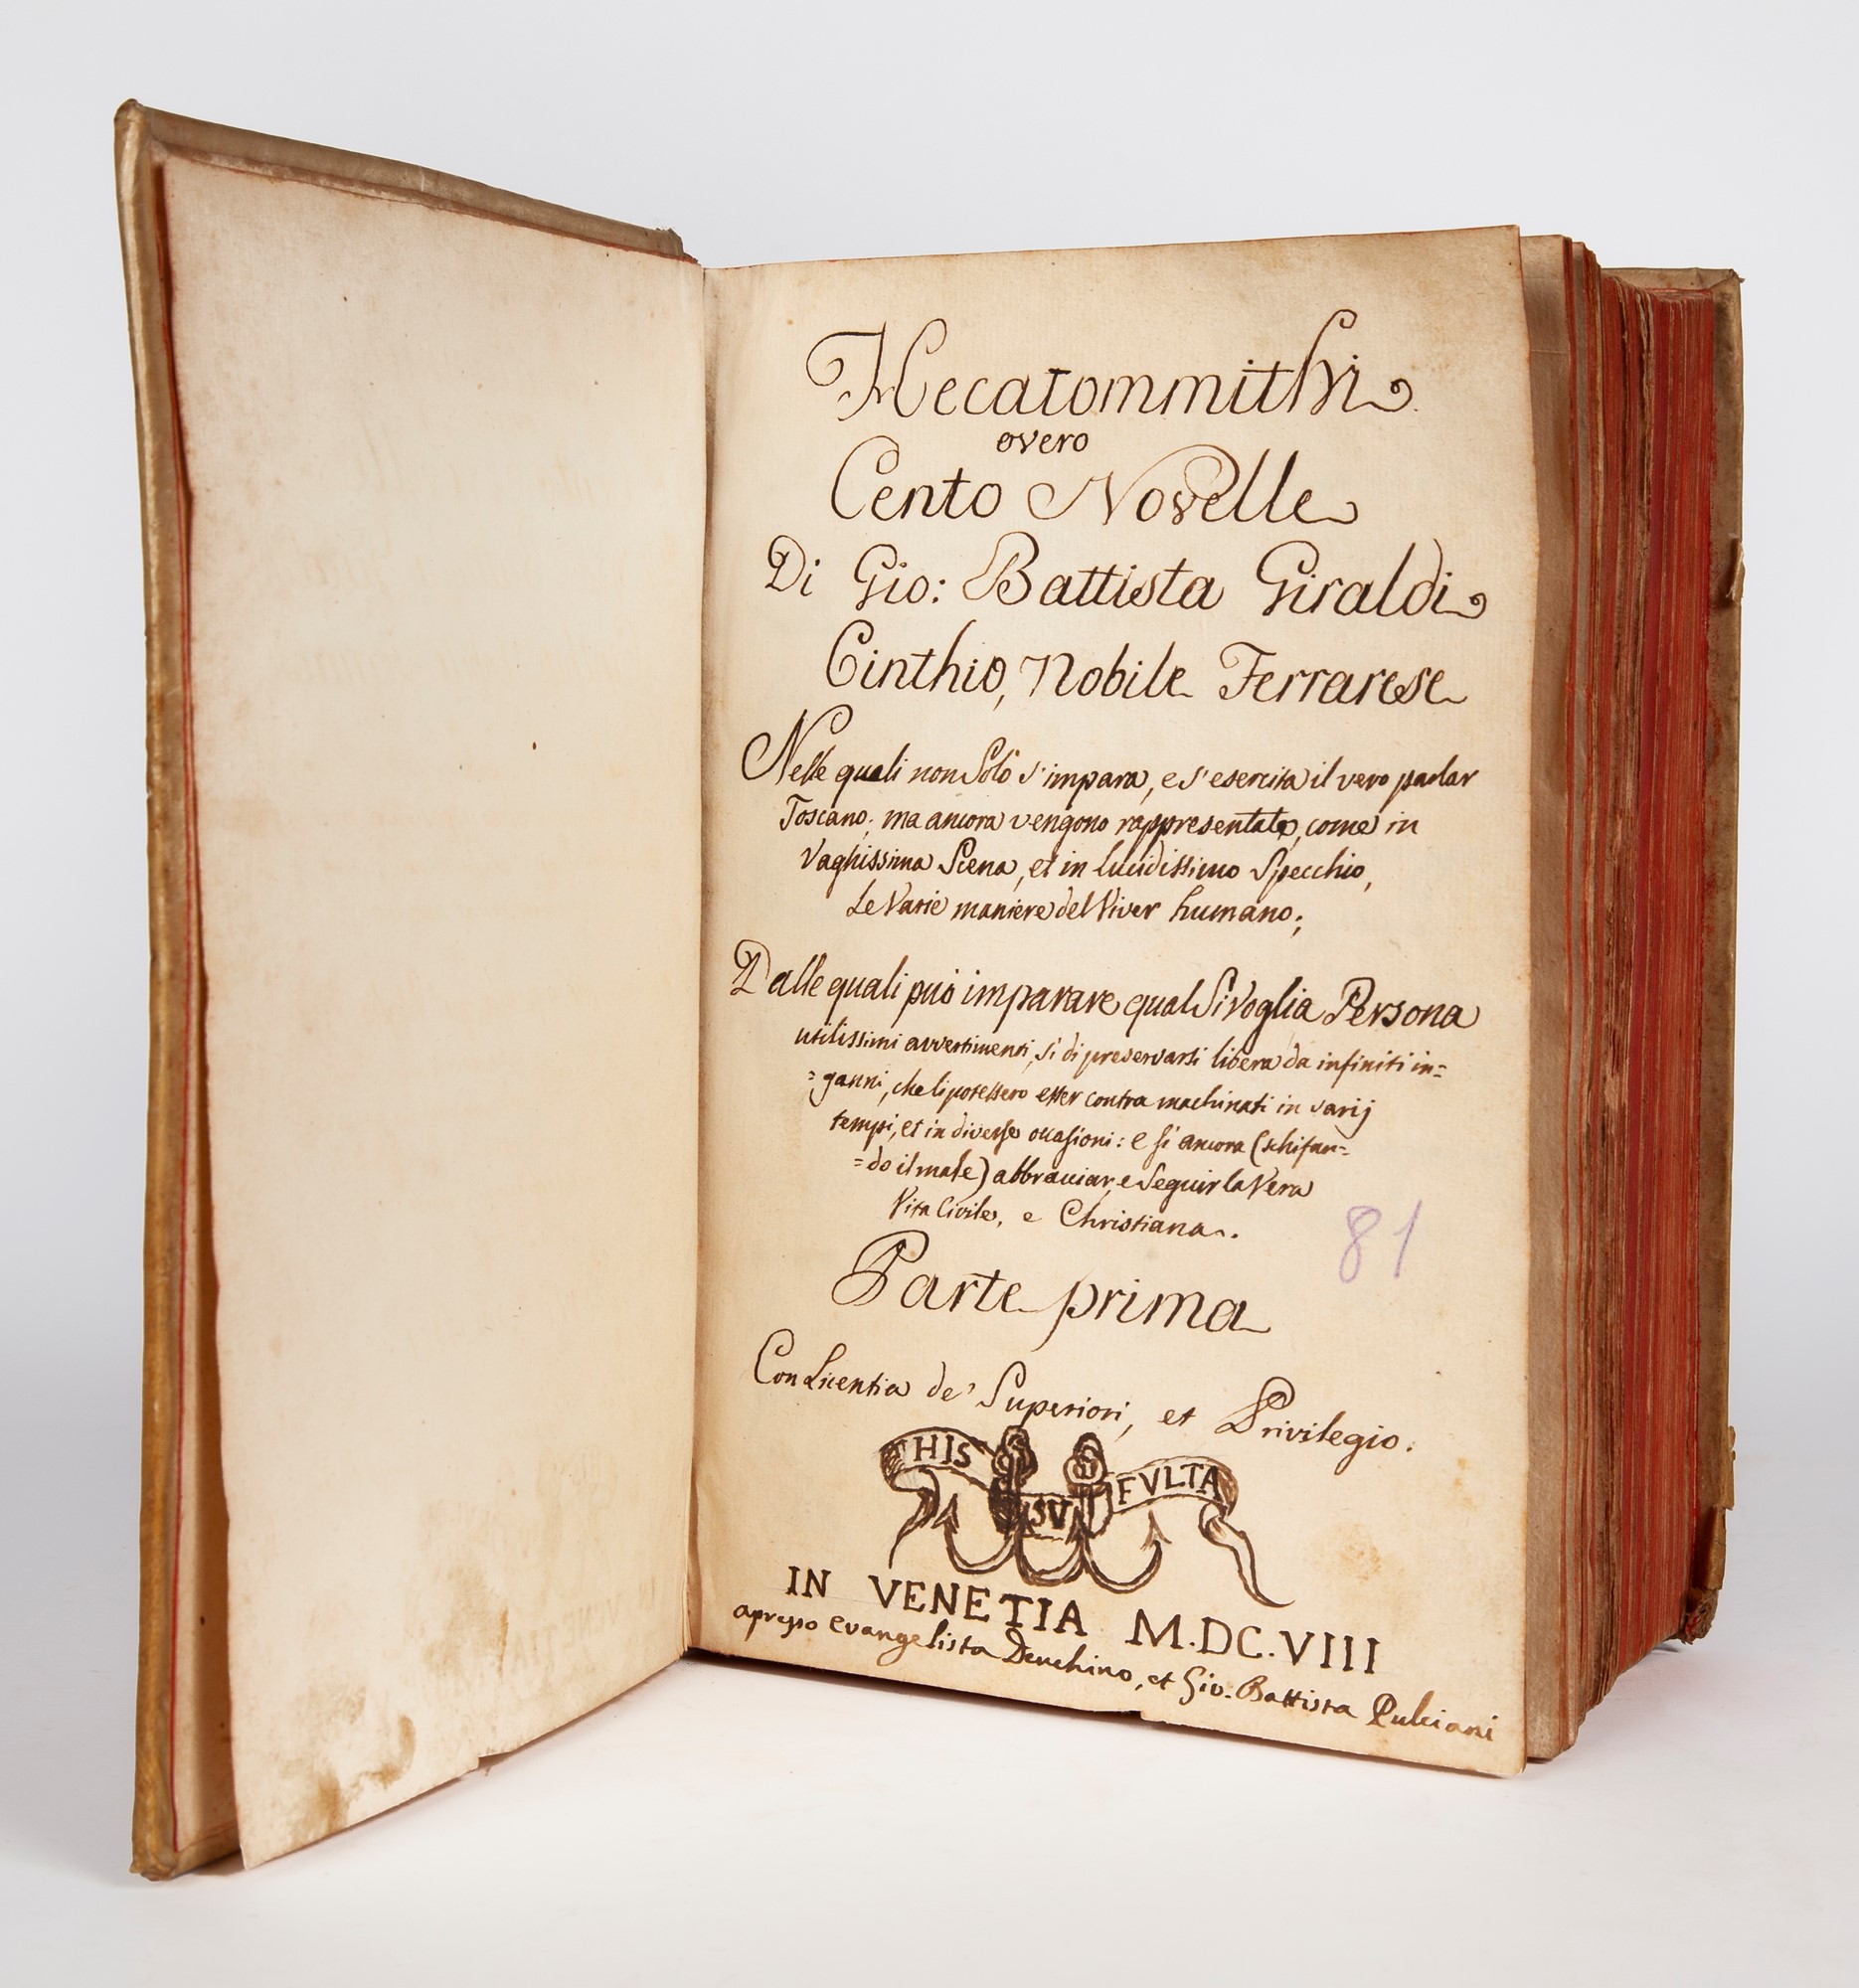 Hecatommithi
overo
Cento Novelle
Di Gio: Battista Giraldi
Cinthio, Nobile Ferrarese
Nelle quali non Solo s'impara, e s'esercita il vero parlar
Toscano; ma ancora vengono rappresentate, come in
Vaghissima Scena, et in lucidissimo Specchio,
Le Varie maniere del Viver humano;
Dalle quali può imparare qual Si Voglia Persona
utilissimi avvertimenti, si di preservarsi libera da infiniti in=
=ganni, che li potessero esser contra machinati in varij
tempi, et in diverse occasioni: e si ancora (schifan=
=do il male) abbracciar, e Seguir la Vera
Vita Civile, e Christiana.
81
Parte prima
Con Licentia de' Superiori, et Privilegio.
HIS SVF FVLTA
IN VENETIA M.DC.VIII
apresso Evangelista Deuchino, et Gio. Battista Pulciani